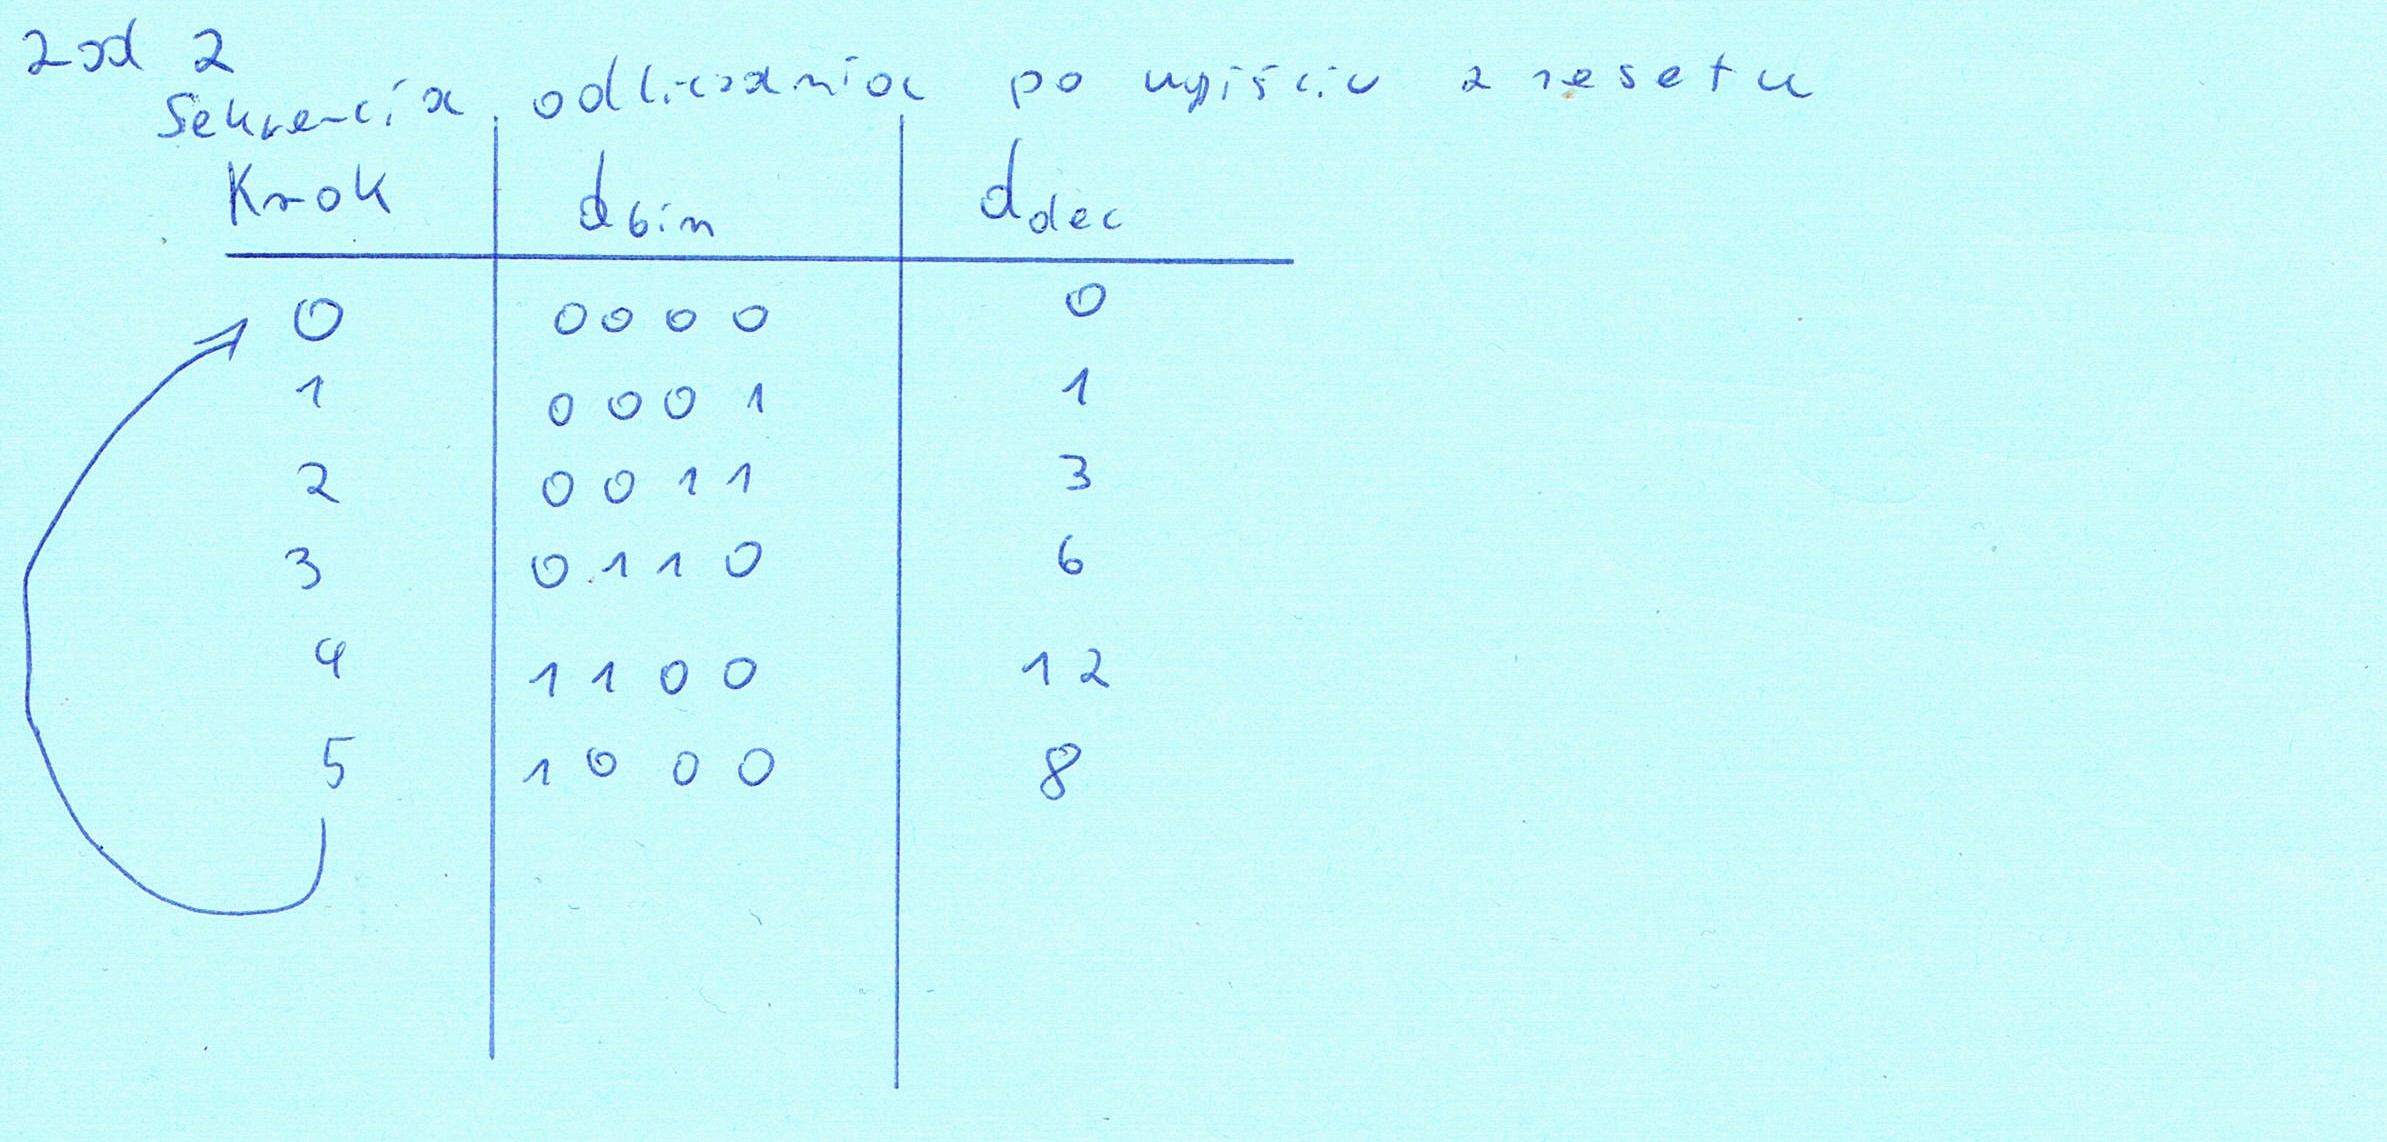 Zad 2
Sekwencja odliczania po wyjściu z resetu
Krok dbin ddec
0 0000 0
1 0001 1
2 0011 3
3 0110 6
4 1100 12
5 1000 8